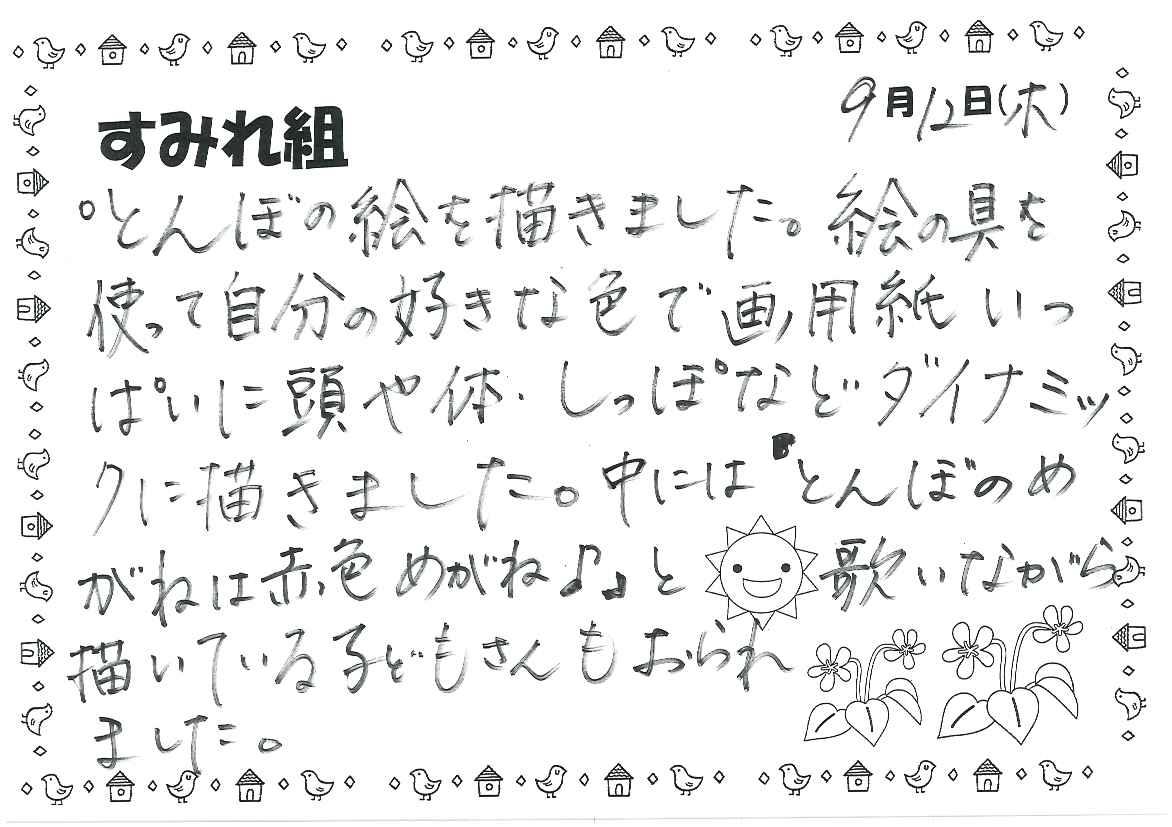 9月12日(木)
すみれ組
°とんぼの絵を描きました。絵の具を
使って自分の好きな色で画用紙いっ
ぱいに頭や体・しっぽなどダイナミッ
クに描きました。中には〝とんぼのめ
がねは赤色めがね♪〟と歌いながら
描いている子どもさんもおられ
ました。